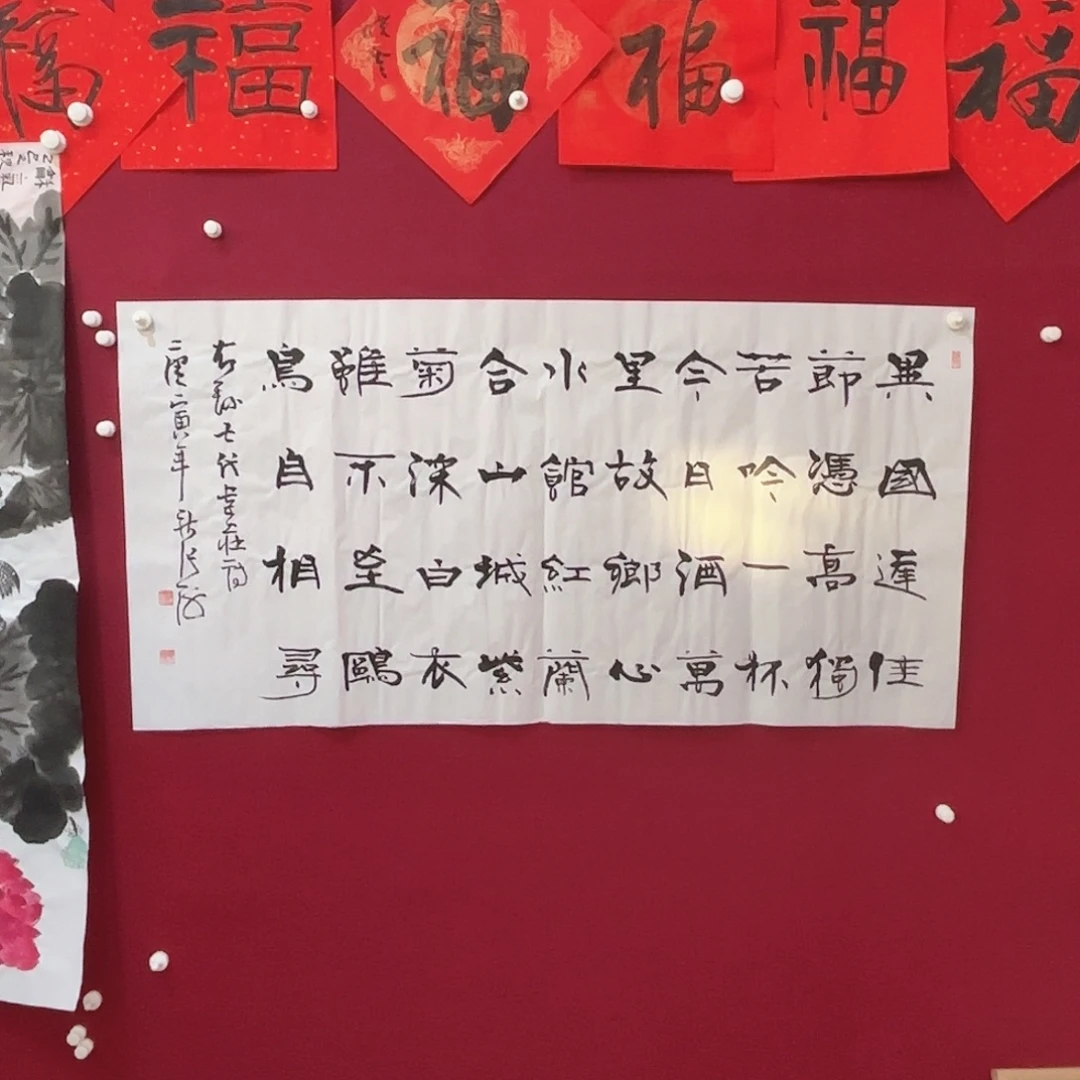 福
福
福
福
福
福
異國逢佳
節憑高獨
苦吟一杯
今日酒萬
里故鄉心
水館紅蘭
合山城紫
菊深白衣
雖不至鷗
鳥自相尋
右錄代韋莊詩
寅年